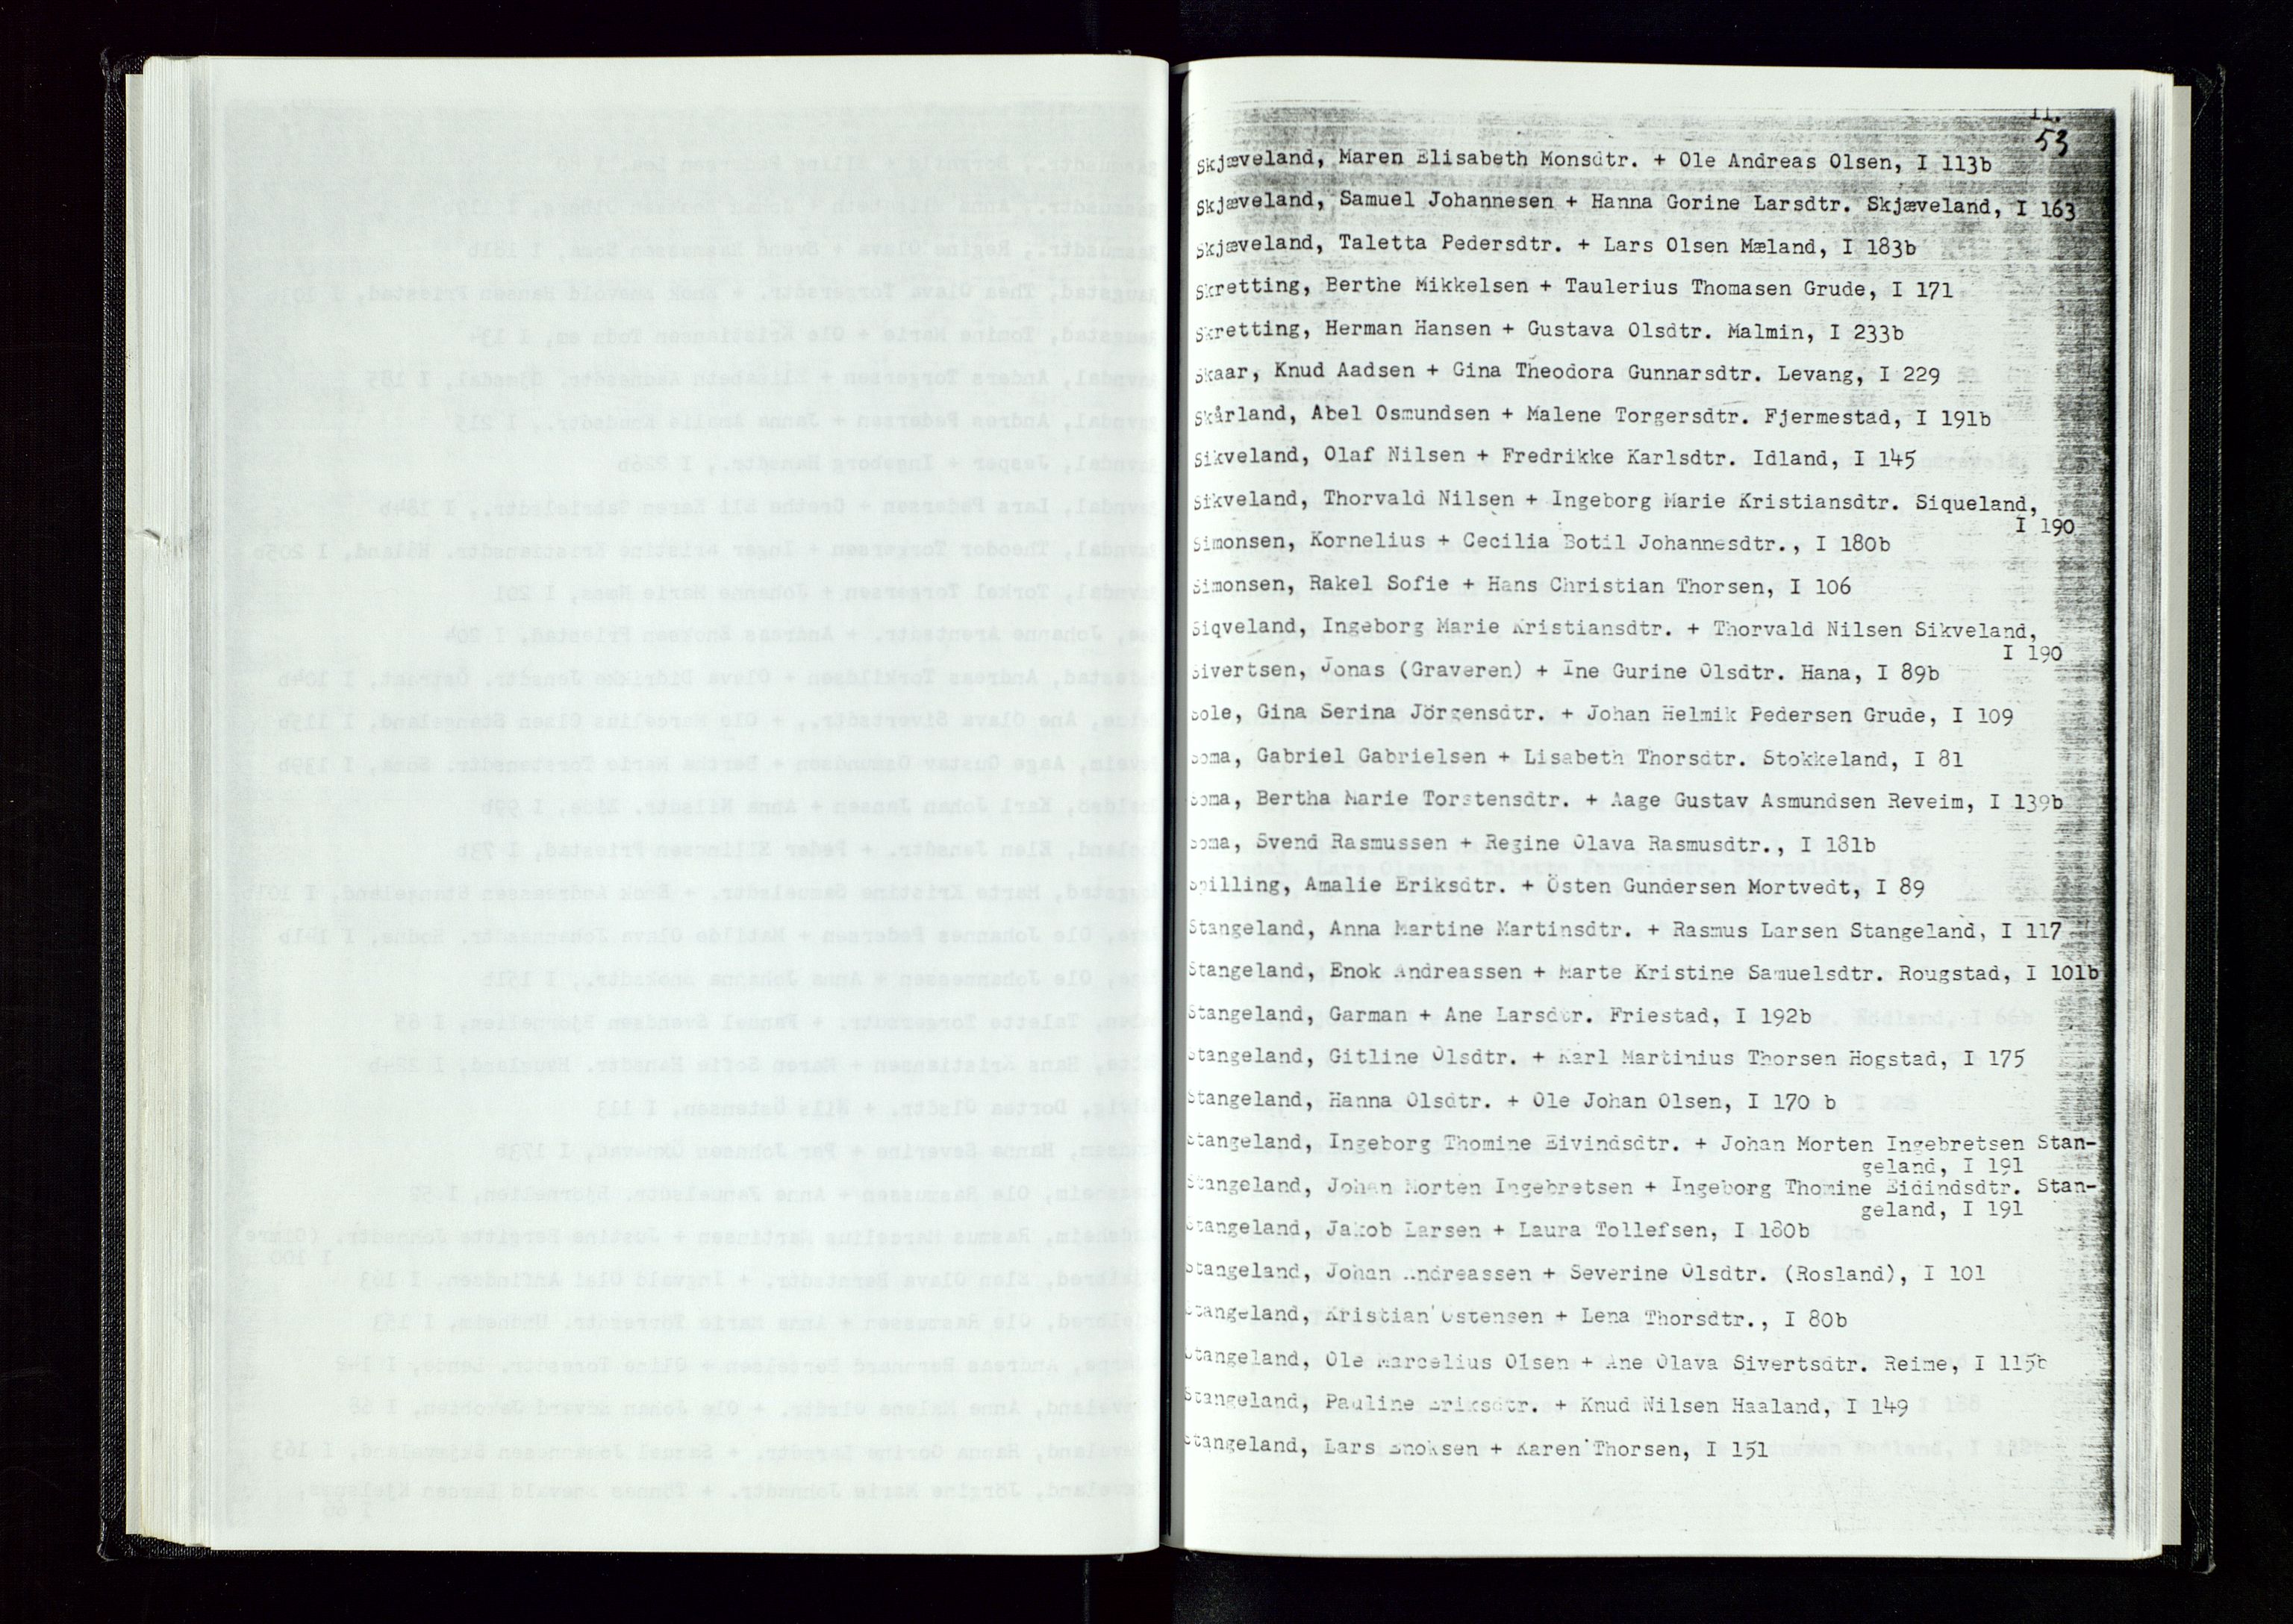 11.
53
Skjæveland, Maren Elisabeth Monsdtr. + Ole Andreas Olsen, I 113b
Skjæveland, Samuel Johannesen + Hanna Gorine Larsdtr. Skjæveland, I 163
Skjæveland, Taletta Pedersdtr. + Lars Olsen Mæland, I 183b
Skretting, Berthe Mikkelsen + Taulerius Thomasen Grude, I 171
Skretting, Herman Hansen + Gustava Olsdtr. Malmin, I 233b
Skaar, Knud Aadsen + Gina Theodora Gunnarsdtr. Levang, I 229
Skårland, Abel Osmundsen + Malene Torgersdtr. Fjermestad, I 191b
Sikveland, Olaf Nilsen + Fredrikke Karlsdtr. Idland, I 145
Sikveland, Thorvald Nilsen + Ingeborg Marie Kristiansdtr. Siqueland,
I 190
Simonsen, Kornelius + Cecilia Botil Johannesdtr., I 180b
Simonsen, Rakel Sofie + Hans Christian Thorsen, I 106
Siqveland, Ingeborg Marie Kristiansdtr. + Thorvald Nilsen Sikveland,
I 190
Sivertsen, Jonas (Graveren) + Ine Gurine Olsdtr. Hana, I 89b
Sole, Gina Serina Jörgensdtr. + Johan Helmik Pedersen Grude, I 109
Soma, Gabriel Gabrielsen + Lisabeth Thorsdtr. Stokkeland, I 81
Soma, Bertha Marie Torstensdtr. + Aage Gustav Asmundsen Reveim, I 139b
Soma, Svend Rasmussen + Regine Olava Rasmusdtr., I 181b
Spilling, Amalie Eriksdtr. + Östen Gundersen Mortvedt, I 89
Stangeland, Anna Martine Martinsdtr. + Rasmus Larsen Stangeland, I 117
Stangeland, Enok Andreassen + Marte Kristine Samuelsdtr. Rougstad, I 101b
Stangeland, Garman + Ane Larsdtr. Friestad, I 192b
Stangeland, Gitline Olsdtr. + Karl Martinius Thorsen Hogstad, I 175
Stangeland, Hanna Olsdtr. + Ole Johan Olsen, I 170 b
Stangeland, Ingeborg Thomine Eivindsdtr. + Johan Morten Ingebretsen Stan-
geland, I 191
Stangeland, Johan Morten Ingebretsen + Ingeborg Thomine Eidindsdtr. Stan-
geland, I 191
Stangeland, Jakob Larsen + Laura Tollefsen, I 180b
Stangeland, Johan Andreassen + Severine Olsdtr. (Rosland), I 101
Stangeland, Kristian Ostensen + Lena Thorsdtr., I 80b
Stangeland, Ole Marcelius Olsen + Ane Olava Sivertsdtr. Reime, I 115b
Stangeland, Pauline Eriksdtr. + Knud Nilsen Haaland, I 149
Stangeland, Lars Enoksen + Karen Thorsen, I 151